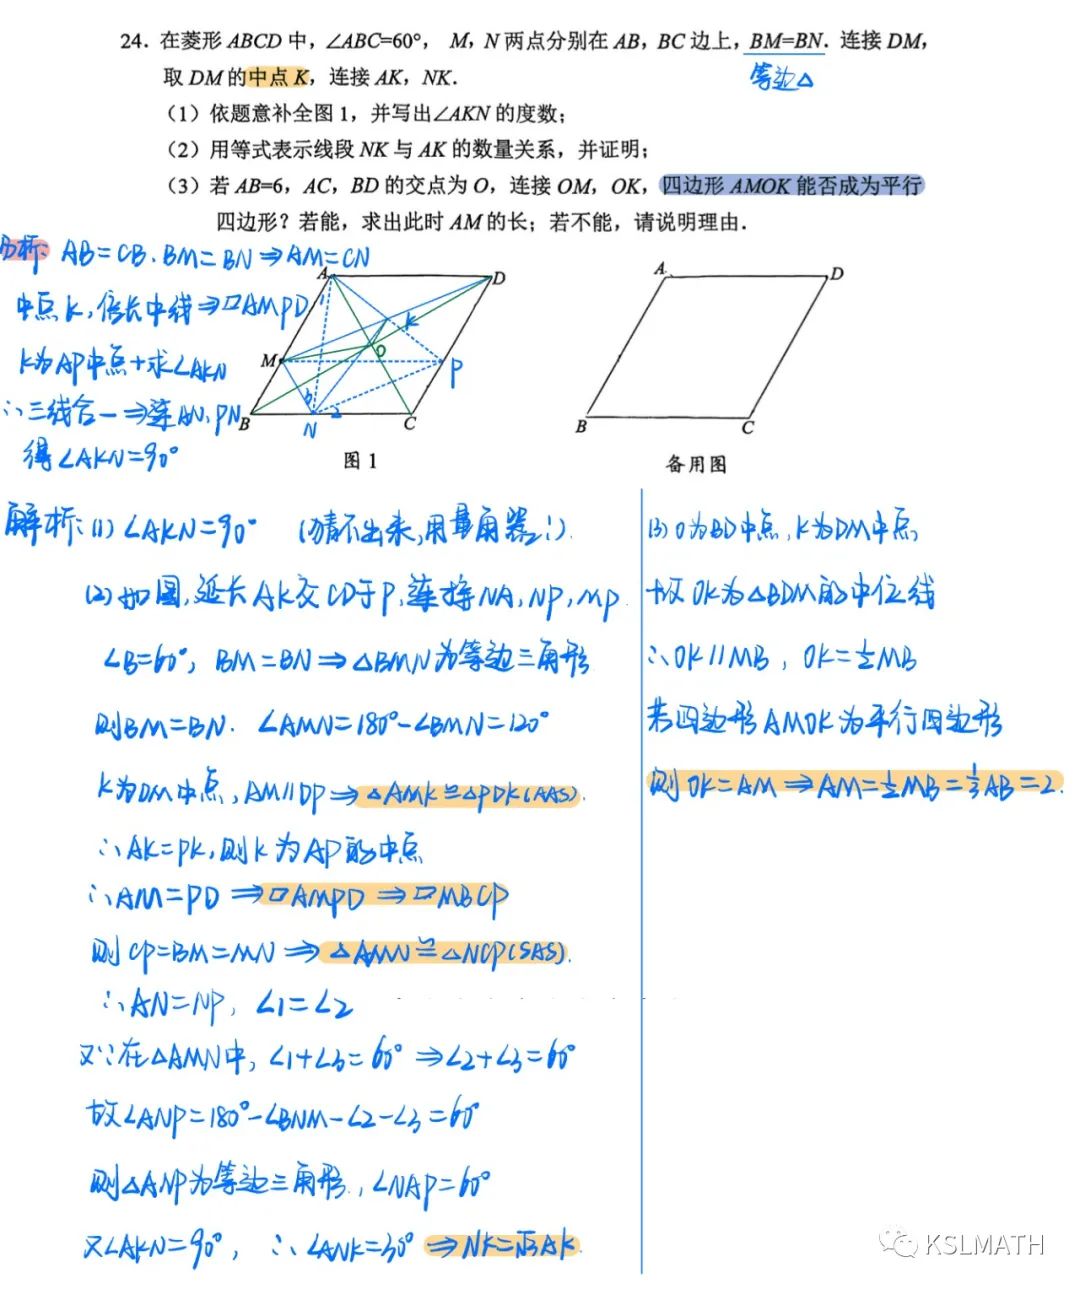 24. 在菱形 ABCD 中，∠ABC=60°， M，N 两点分别在 AB，BC 边上，BM=BN．连接 DM，
等边△
取 DM 的中点 K，连接 AK，NK．
（1）依题意补全图 1，并写出∠AKN 的度数；
（2）用等式表示线段 NK 与 AK 的数量关系，并证明；
（3）若 AB=6，AC，BD 的交点为 O，连接 OM，OK，四边形 AMOK 能否成为平行
四边形？若能，求出此时 AM 的长；若不能，请说明理由．
分析: AB=CB. BM=BN⇒AM=CN
中点K, 倍长中线⇒▱AMPD
K为AP中点+求∠AKN
∴三线合一⇒连AN, PN
得∠AKN=90°
A D
1
K
M O P
3 2
B N C
图 1
A D
B C
备用图
解析: (1) ∠AKN=90° (猜不出来,用量角器:)
(2) 如图, 延长AK交CD于P, 连接NA, NP, MP
∠B=60°, BM=BN⇒△BMN为等边三角形
则BM=BN. ∠AMN=180°-∠BMN=120°
K为DM中点, AM∥DP⇒△AMK≌△PDK(AAS).
∴AK=PK, 则K为AP的中点
∴AM=PD ⇒▱AMPD ⇒▱MBCP
则CP=BM=MN ⇒△AMN≌△NCP(SAS).
∴AN=NP, ∠1=∠2
又∵在△AMN中, ∠1+∠3=60° ⇒∠2+∠3=60°
故∠ANP=180°-∠BNM-∠2-∠3=60°
则△ANP为等边三角形, ∠NAP=60°
又∠AKN=90°, ∴∠ANK=30° ⇒NK=√3AK
(3) O为BD中点, K为DM中点
故OK为△BDM的中位线
∴OK∥MB, OK=½MB
若四边形AMOK为平行四边形
则OK=AM⇒AM=½MB=⅓AB=2.
KSLMATH